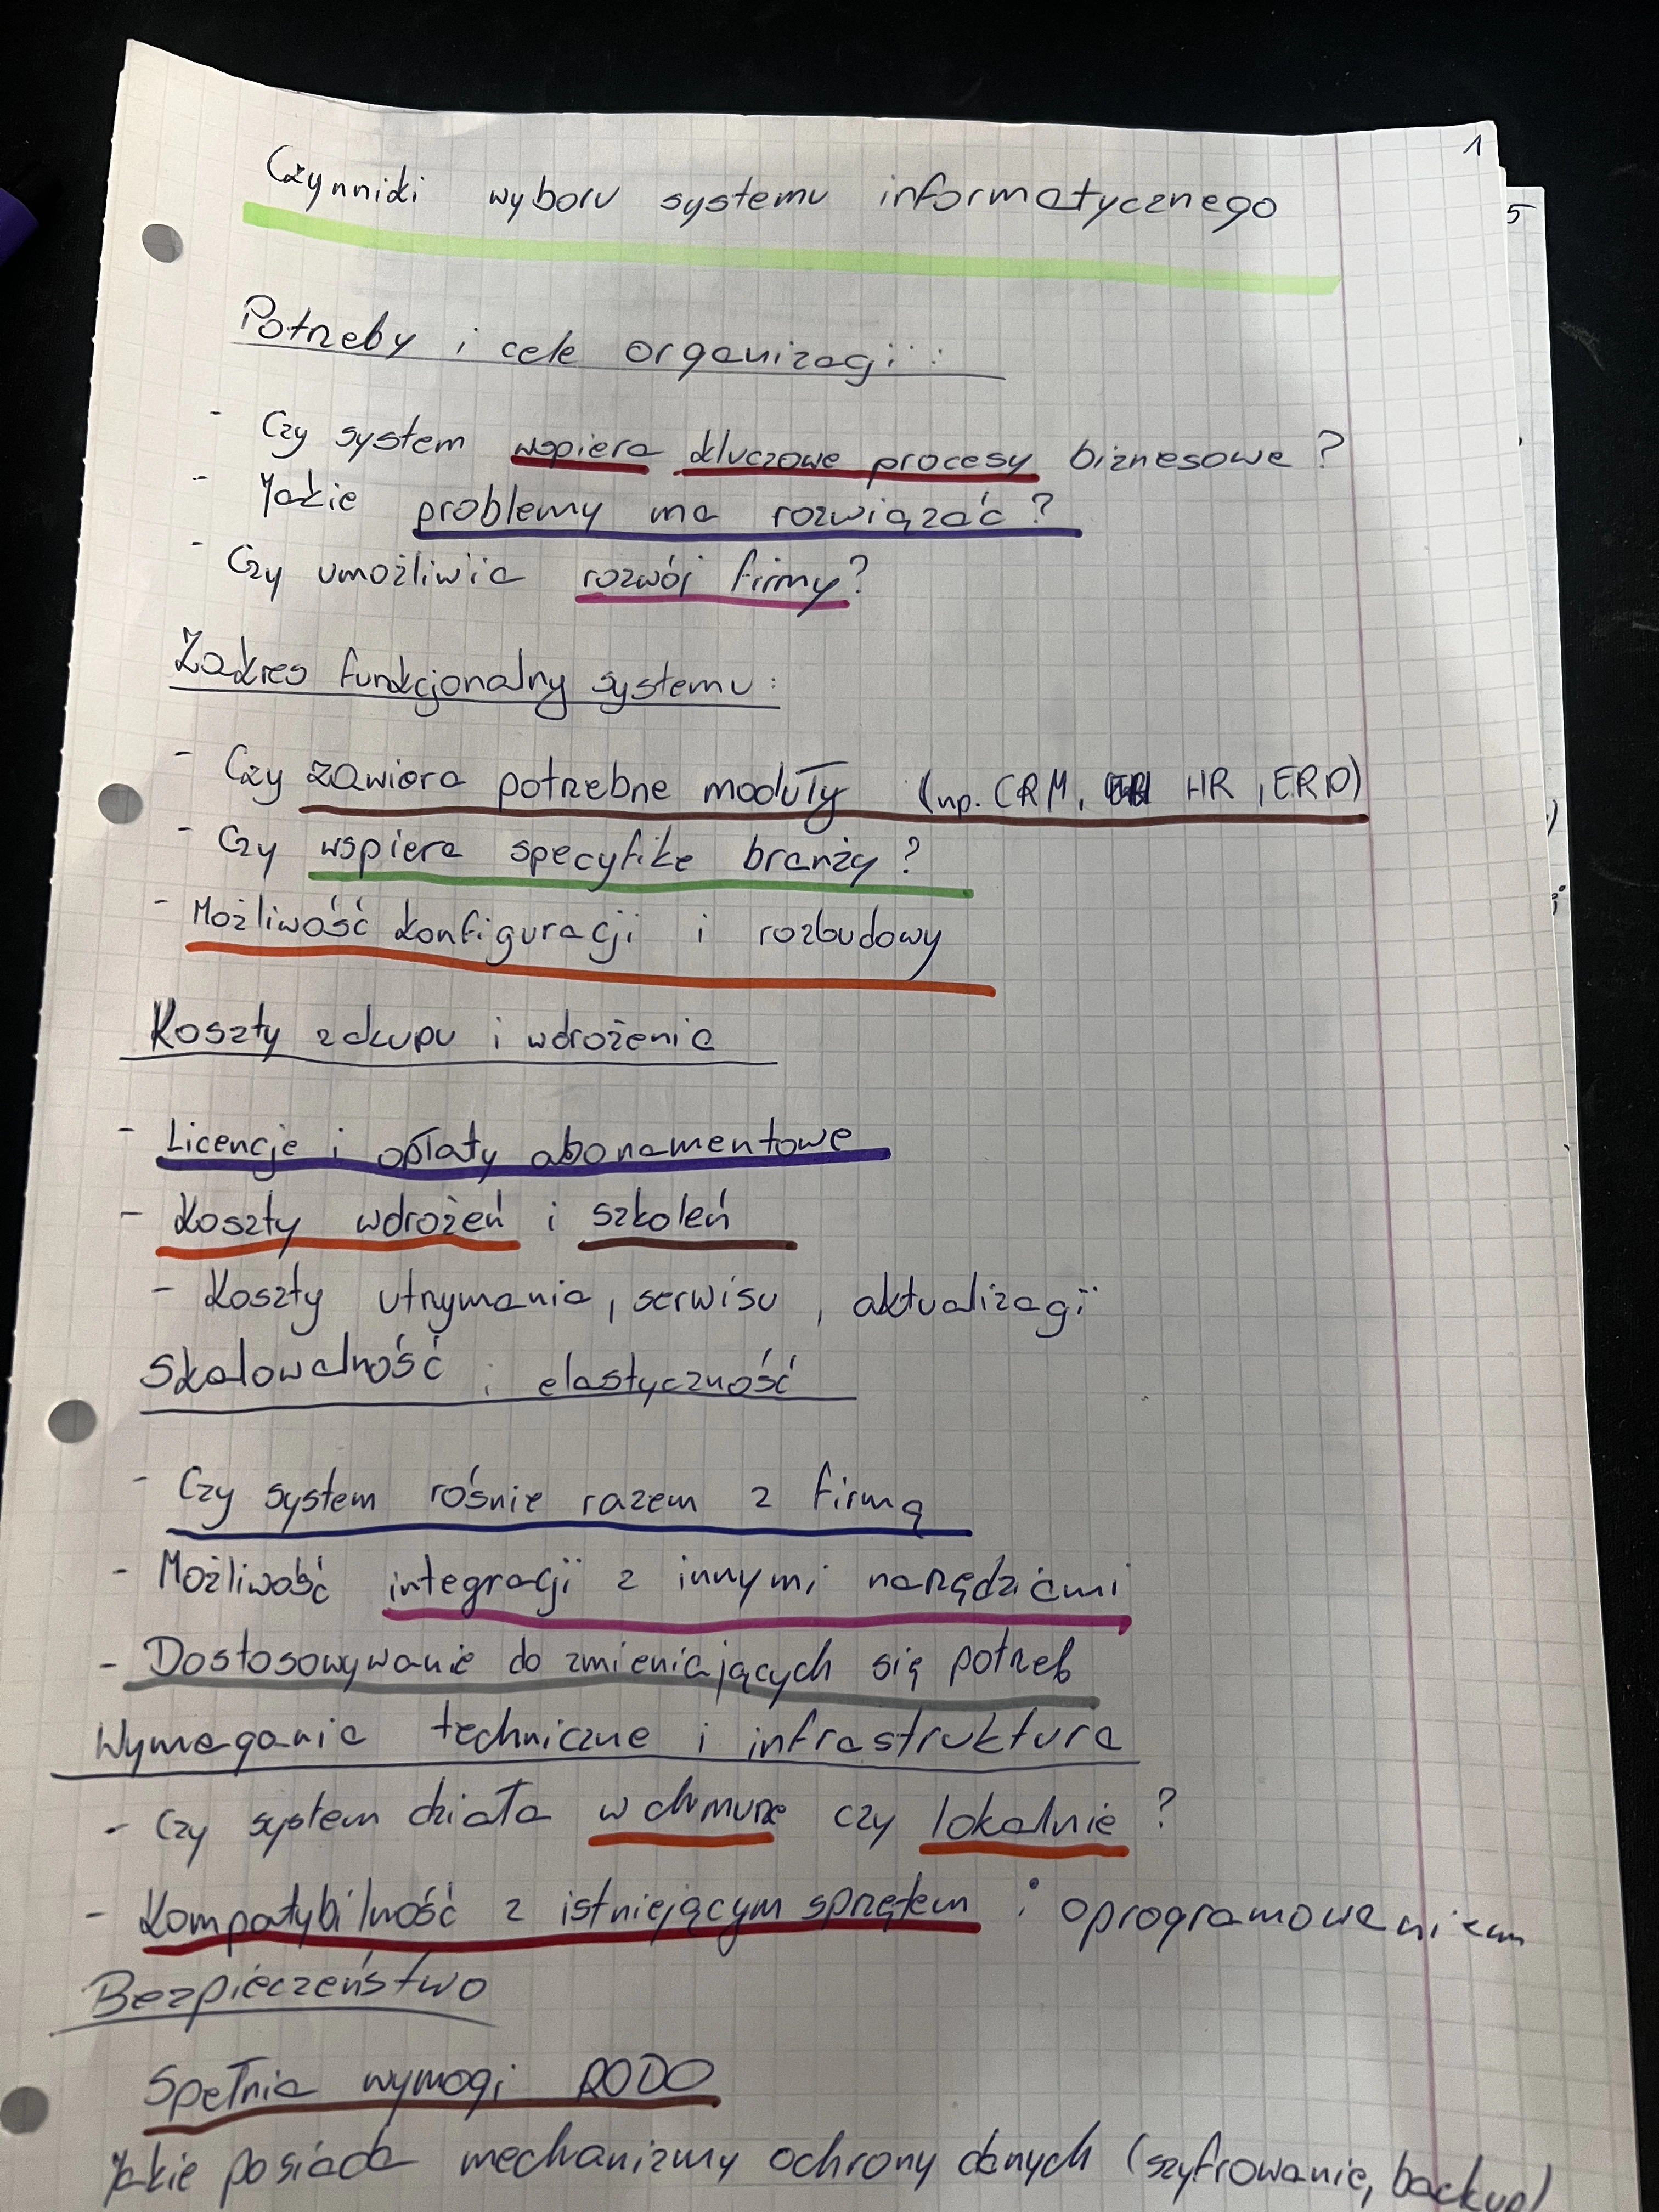 1
Czynniki wyboru systemu informatycznego
5
Potrzeby i cele organizacji:
- Czy system wspiera kluczowe procesy biznesowe?
- Jakie problemy ma rozwiązać?
- Czy umożliwia rozwój firmy?
Zakres funkcjonalny systemu:
- Czy zawiera potrzebne moduły (np. CRM, HR, ERP)
- Czy wspiera specyfikę branży?
- Możliwość konfiguracji i rozbudowy
Koszty zakupu i wdrożenia
- Licencje i opłaty abonamentowe
- Koszty wdrożeń i szkoleń
- Koszty utrzymania, serwisu, aktualizacji
Skalowalność i elastyczność
- Czy system rośnie razem z firmą
- Możliwość integracji z innymi narzędziami
- Dostosowywanie do zmieniających się potrzeb
Wymagania techniczne i infrastruktura
- Czy system działa w chmurze czy lokalnie?
- Kompatybilność z istniejącym sprzętem i oprogramowaniem
Bezpieczeństwo
Spełnia wymogi RODO
Jakie posiada mechanizmy ochrony danych (szyfrowanie, backup)